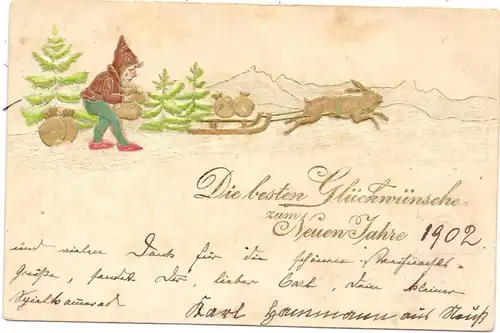 Die besten Glückwünsche
zum Neuen Jahre 1902.
und vielen Dank für die schönen Weihnachts-
grüße, sendet Dir lieber Carl, Dein kleiner
Spielkamerad
Karl Hammann aus Neuß